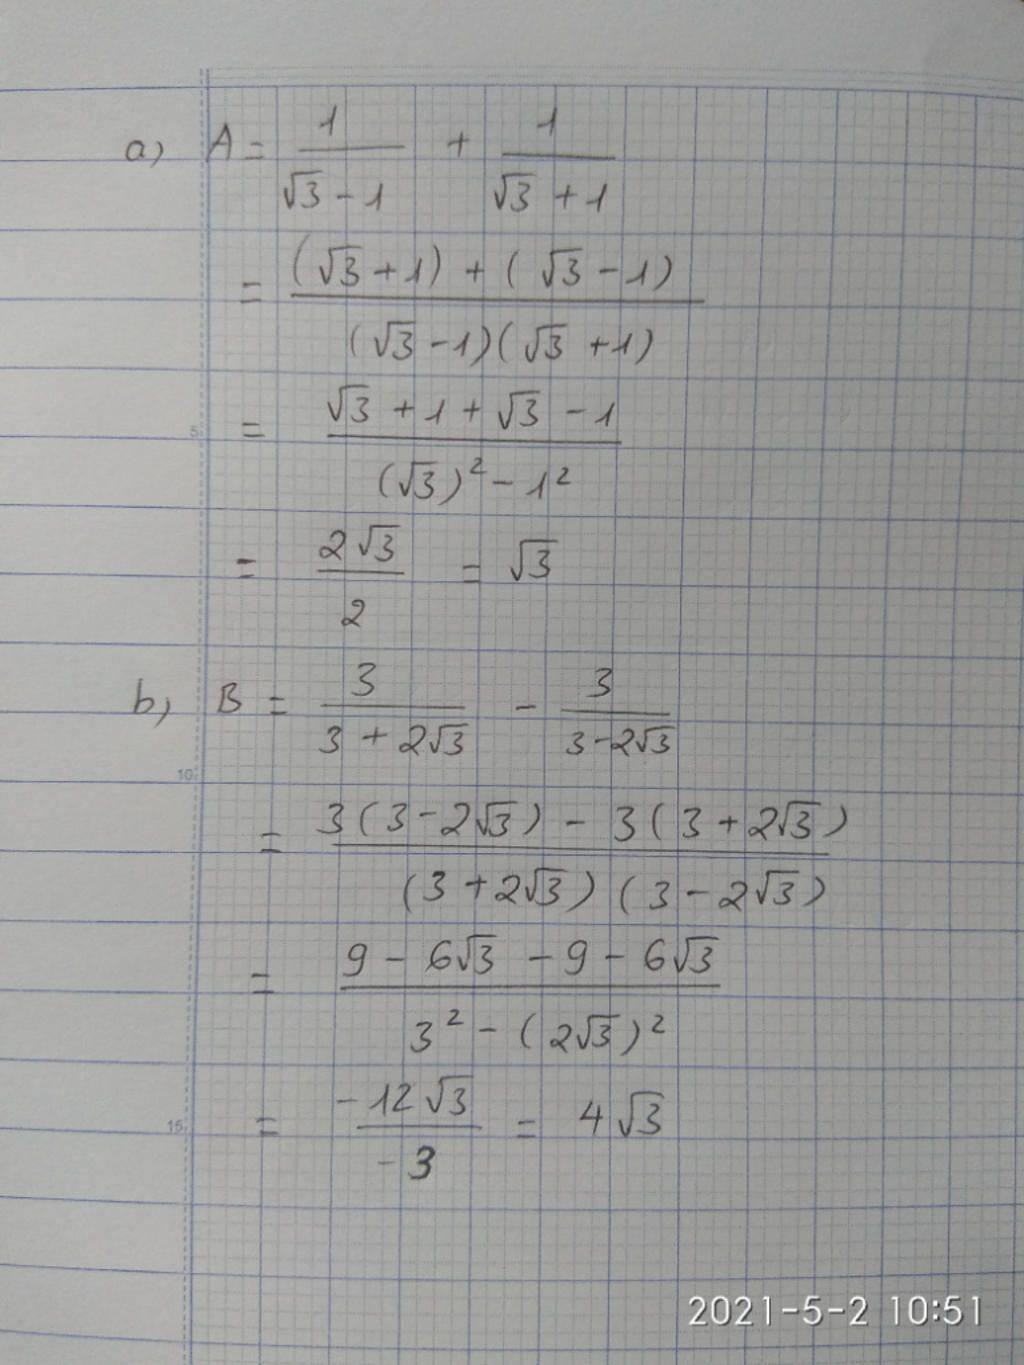 a) A = 1/(√3 - 1) + 1/(√3 + 1)
= ((√3 + 1) + (√3 - 1))/((√3 - 1)(√3 + 1))
= (√3 + 1 + √3 - 1)/((√3)² - 1²)
= 2√3/2 = √3
b) B = 3/(3 + 2√3) - 3/(3 - 2√3)
= (3(3 - 2√3) - 3(3 + 2√3))/((3 + 2√3)(3 - 2√3))
= (9 - 6√3 - 9 - 6√3)/(3² - (2√3)²)
= -12√3/-3 = 4√3
5
10
15
2021-5-2 10:51